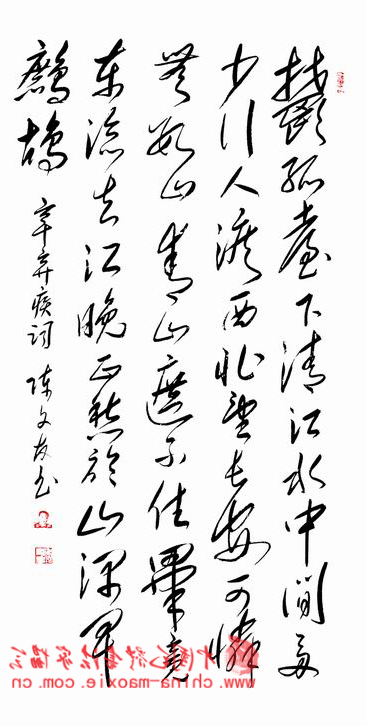 鬱孤臺下清江水中間多
少行人淚西北望長安可憐
無數山青山遮不住畢竟
東流去江晚正愁餘山深聞
鷓鴣
辛弃疾词 陈文友书
www.china-maoxie.com.cn